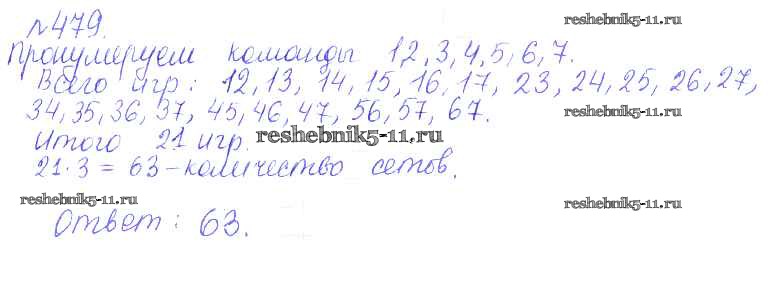 №479. reshebnik5-11.ru
Пронумеруем команды 1,2,3,4,5,6,7.
Всего игр: 12,13, 14, 15, 16, 17, 23, 24, 25, 26, 27,
34, 35, 36, 37, 45, 46, 47, 56, 57, 67. reshebnik5-11.ru
Итого 21 игр. reshebnik5-11.ru
21·3 = 63 - количество сетов.
reshebnik5-11.ru reshebnik5-11.ru
Ответ: 63.